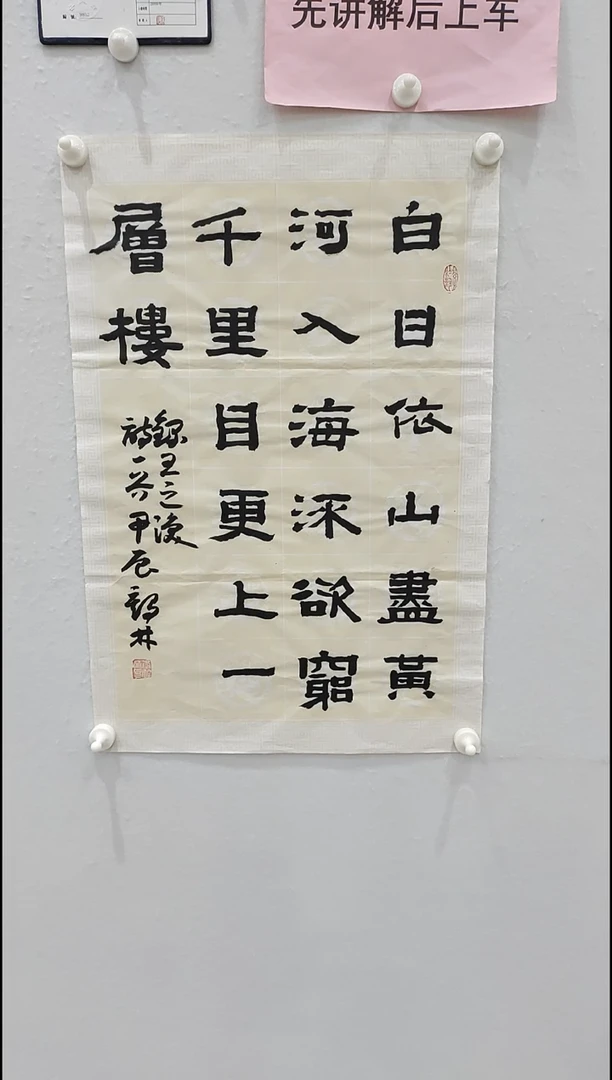 先讲解后上车
白日依山盡黃
河入海流欲窮
千里目更上一
層樓
錄王之渙
詩一首甲辰林